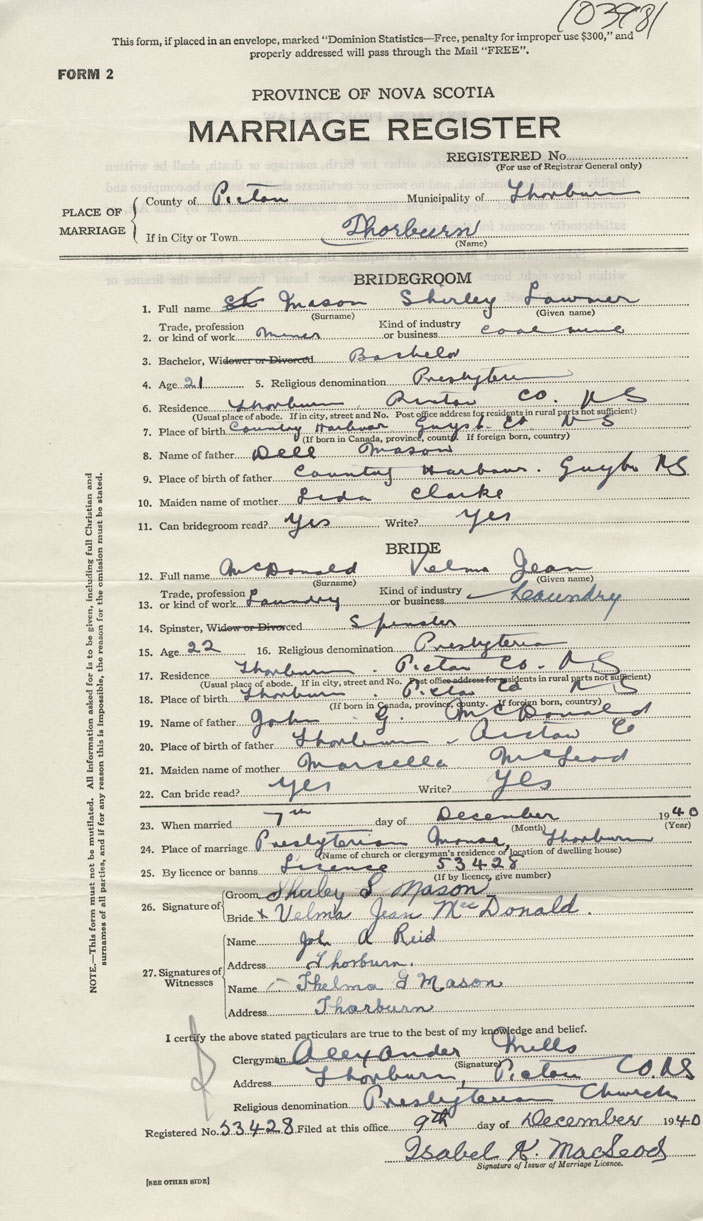 103981
This form, if placed in an envelope, marked "Dominion Statistics—Free, penalty for improper use $300," and
properly addressed will pass through the Mail "FREE".
FORM 2
PROVINCE OF NOVA SCOTIA
MARRIAGE REGISTER
REGISTERED No.
(For use of Registrar General only)
PLACE OF MARRIAGE
County of Pictou Municipality of Thorburn
If in City or Town Thorburn
(Name)
BRIDEGROOM
1. Full name Mason Shirley
(Surname) (Given name)
2. Trade, profession or kind of work Miner Kind of industry or business coal mine
3. Bachelor, Widower or Divorced Bachelor
4. Age 21 5. Religious denomination Presbyterian
6. Residence Thorburn Pictou Co. NS
(Usual place of abode. If in city, street and No. Post office address for residents in rural parts not sufficient)
7. Place of birth Country Harbour Guysb. Co NS
(If born in Canada, province, county. If foreign born, country)
8. Name of father Dell Mason
9. Place of birth of father Country Harbour. Guysbo NS
10. Maiden name of mother Lida Clarke
11. Can bridegroom read? Yes Write? Yes
BRIDE
12. Full name McDonald Velma Jean
(Surname) (Given name)
13. Trade, profession or kind of work Laundry Kind of industry or business Laundry
14. Spinster, Widow or Divorced Spinster
15. Age 22 16. Religious denomination Presbyterian
17. Residence Thorburn. Pictou Co. NS
(Usual place of abode. If in city, street and No. Post office address for residents in rural parts not sufficient)
18. Place of birth Thorburn. Pictou Co NS
(If born in Canada, province, county. If foreign born, country)
19. Name of father John G. McDonald
20. Place of birth of father Thorburn - Pictou Co
21. Maiden name of mother Marsella McLeod
22. Can bride read? Yes Write? Yes
23. When married 7th day of December 1940
(Month) (Year)
24. Place of marriage Presbyterian Manse, Thorburn
(Name of church or clergyman's residence or location of dwelling house)
25. By licence or banns Licence 53428
(If by licence, give number)
26. Signature of
Groom Shirley L Mason
Bride x Velma Jean MacDonald.
27. Signatures of Witnesses
Name John A Reid
Address Thorburn.
Name Thelma G Mason
Address Thorburn
I certify the above stated particulars are true to the best of my knowledge and belief.
Clergyman Alexander Mills
(Signature)
Address Thorburn, Pictou CO. NS
Religious denomination Presbyterian Church
Registered No. 53428 Filed at this office 9th day of December 1940
Isabel K. MacLeod
Signature of Issuer of Marriage Licence.
[SEE OTHER SIDE]
NOTE.—This form must not be mutilated. All information asked for is to be given, including full Christian and
surnames of all parties, and if for any reason this is impossible, the reason for the omission must be stated.